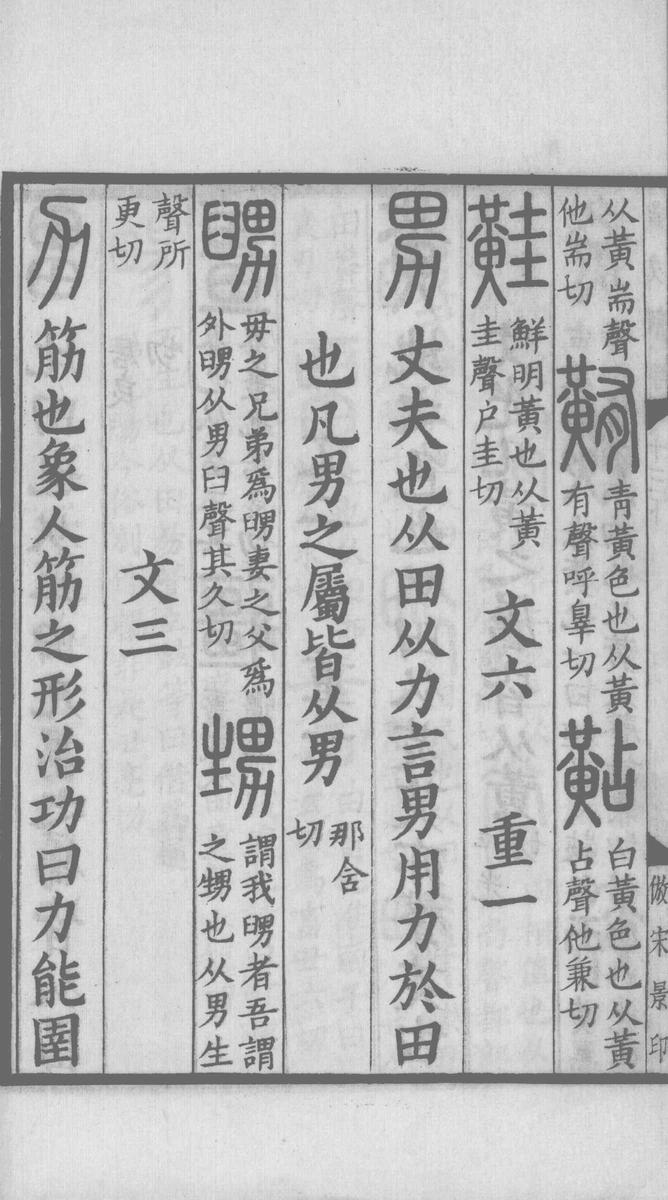 从黃耑聲
他耑切
䵋
青黃色也从黃
有聲呼辠切
黇
白黃色也从黃
占聲他兼切
黊
鮮明黃也从黃
圭聲户圭切
文六
重一
男
丈夫也从田从力言男用力於田
也凡男之屬皆从男
那含
切
舅
毋之兄弟爲舅妻之父爲
外舅从男臼聲其久切
甥
謂我舅者吾謂
之甥也从男生
聲所
更切
文三
力
筋也象人筋之形治功曰力能圉
倣宋景印